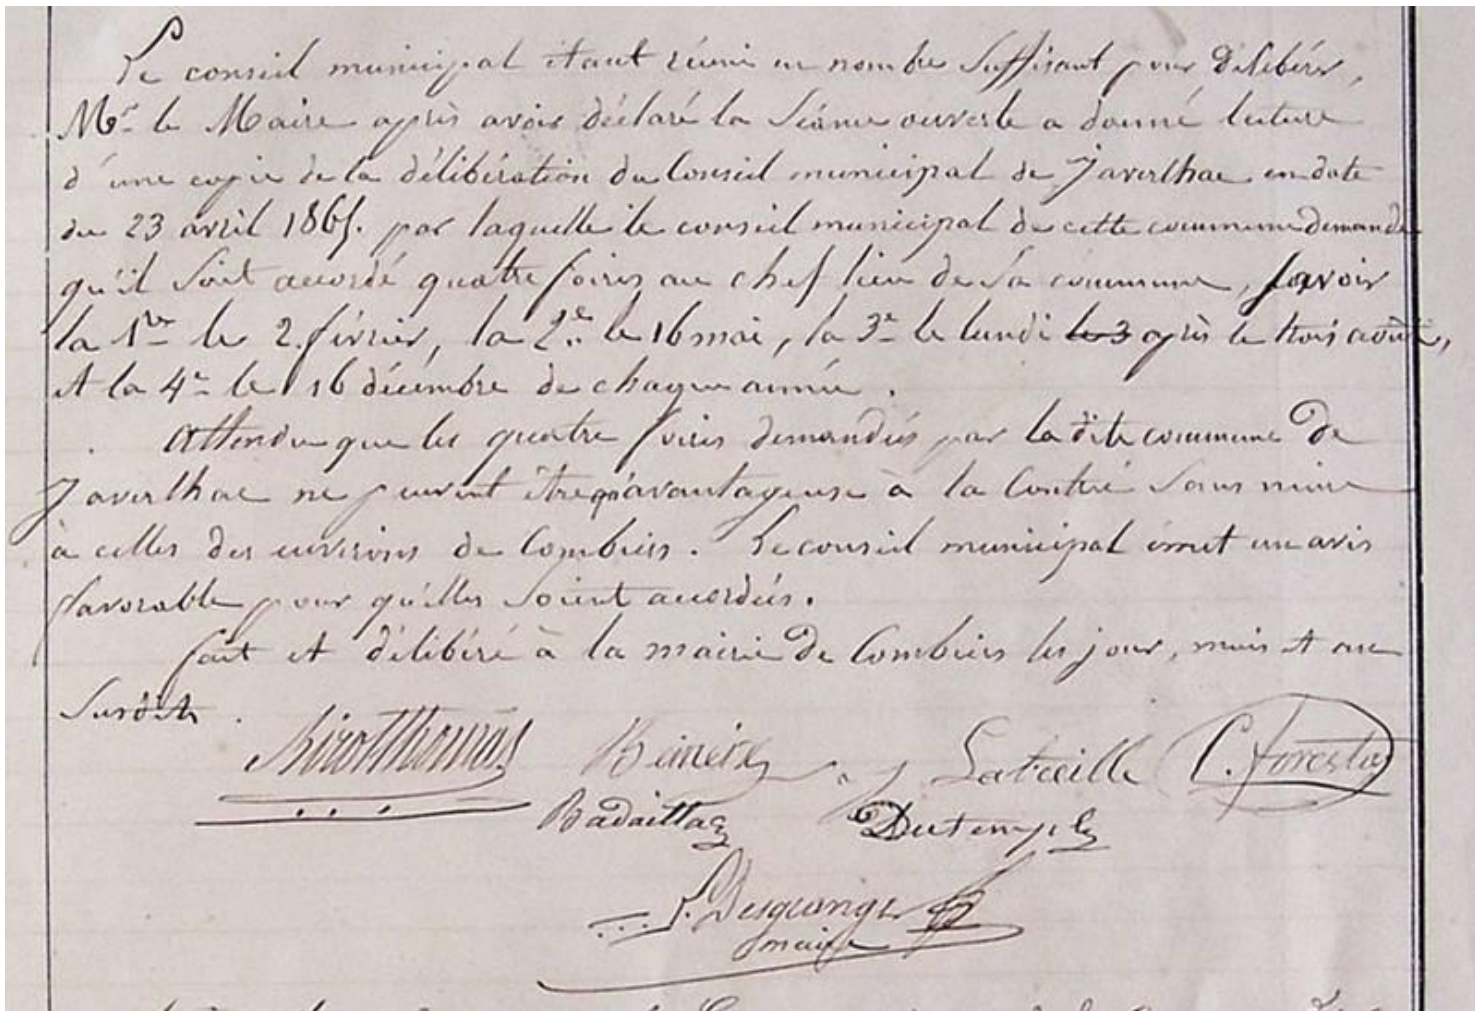 Le conseil municipal étant réuni en nombre suffisant pour délibérer,
Mr. le Maire après avoir déclaré la séance ouverte a donné lecture
d'une copie de la délibération du Conseil municipal de Javerlhac en date
du 23 avril 1865. par laquelle le conseil municipal de cette commune demande
qu'il soit accordé quatre foires au chef lieu de sa commune, savoir
la 1re le 2 février, la 2e le 16 mai, la 3e le lundi le 3 après le trois août,
et la 4e le 16 décembre de chaque année.
Attendu que les quatre foires demandées par la dite commune de
Javerlhac ne peuvent être qu'avantageuse à la Contré sans nuire
à celles des environs de Combiers. Le conseil municipal émet un avis
favorable pour qu'elles soient accordées.
fait et délibéré à la mairie de Combiers les jour, mois et an
susdits.
Latreille C. forestas
Badaillac Dutemple
P. Desgranges
maire